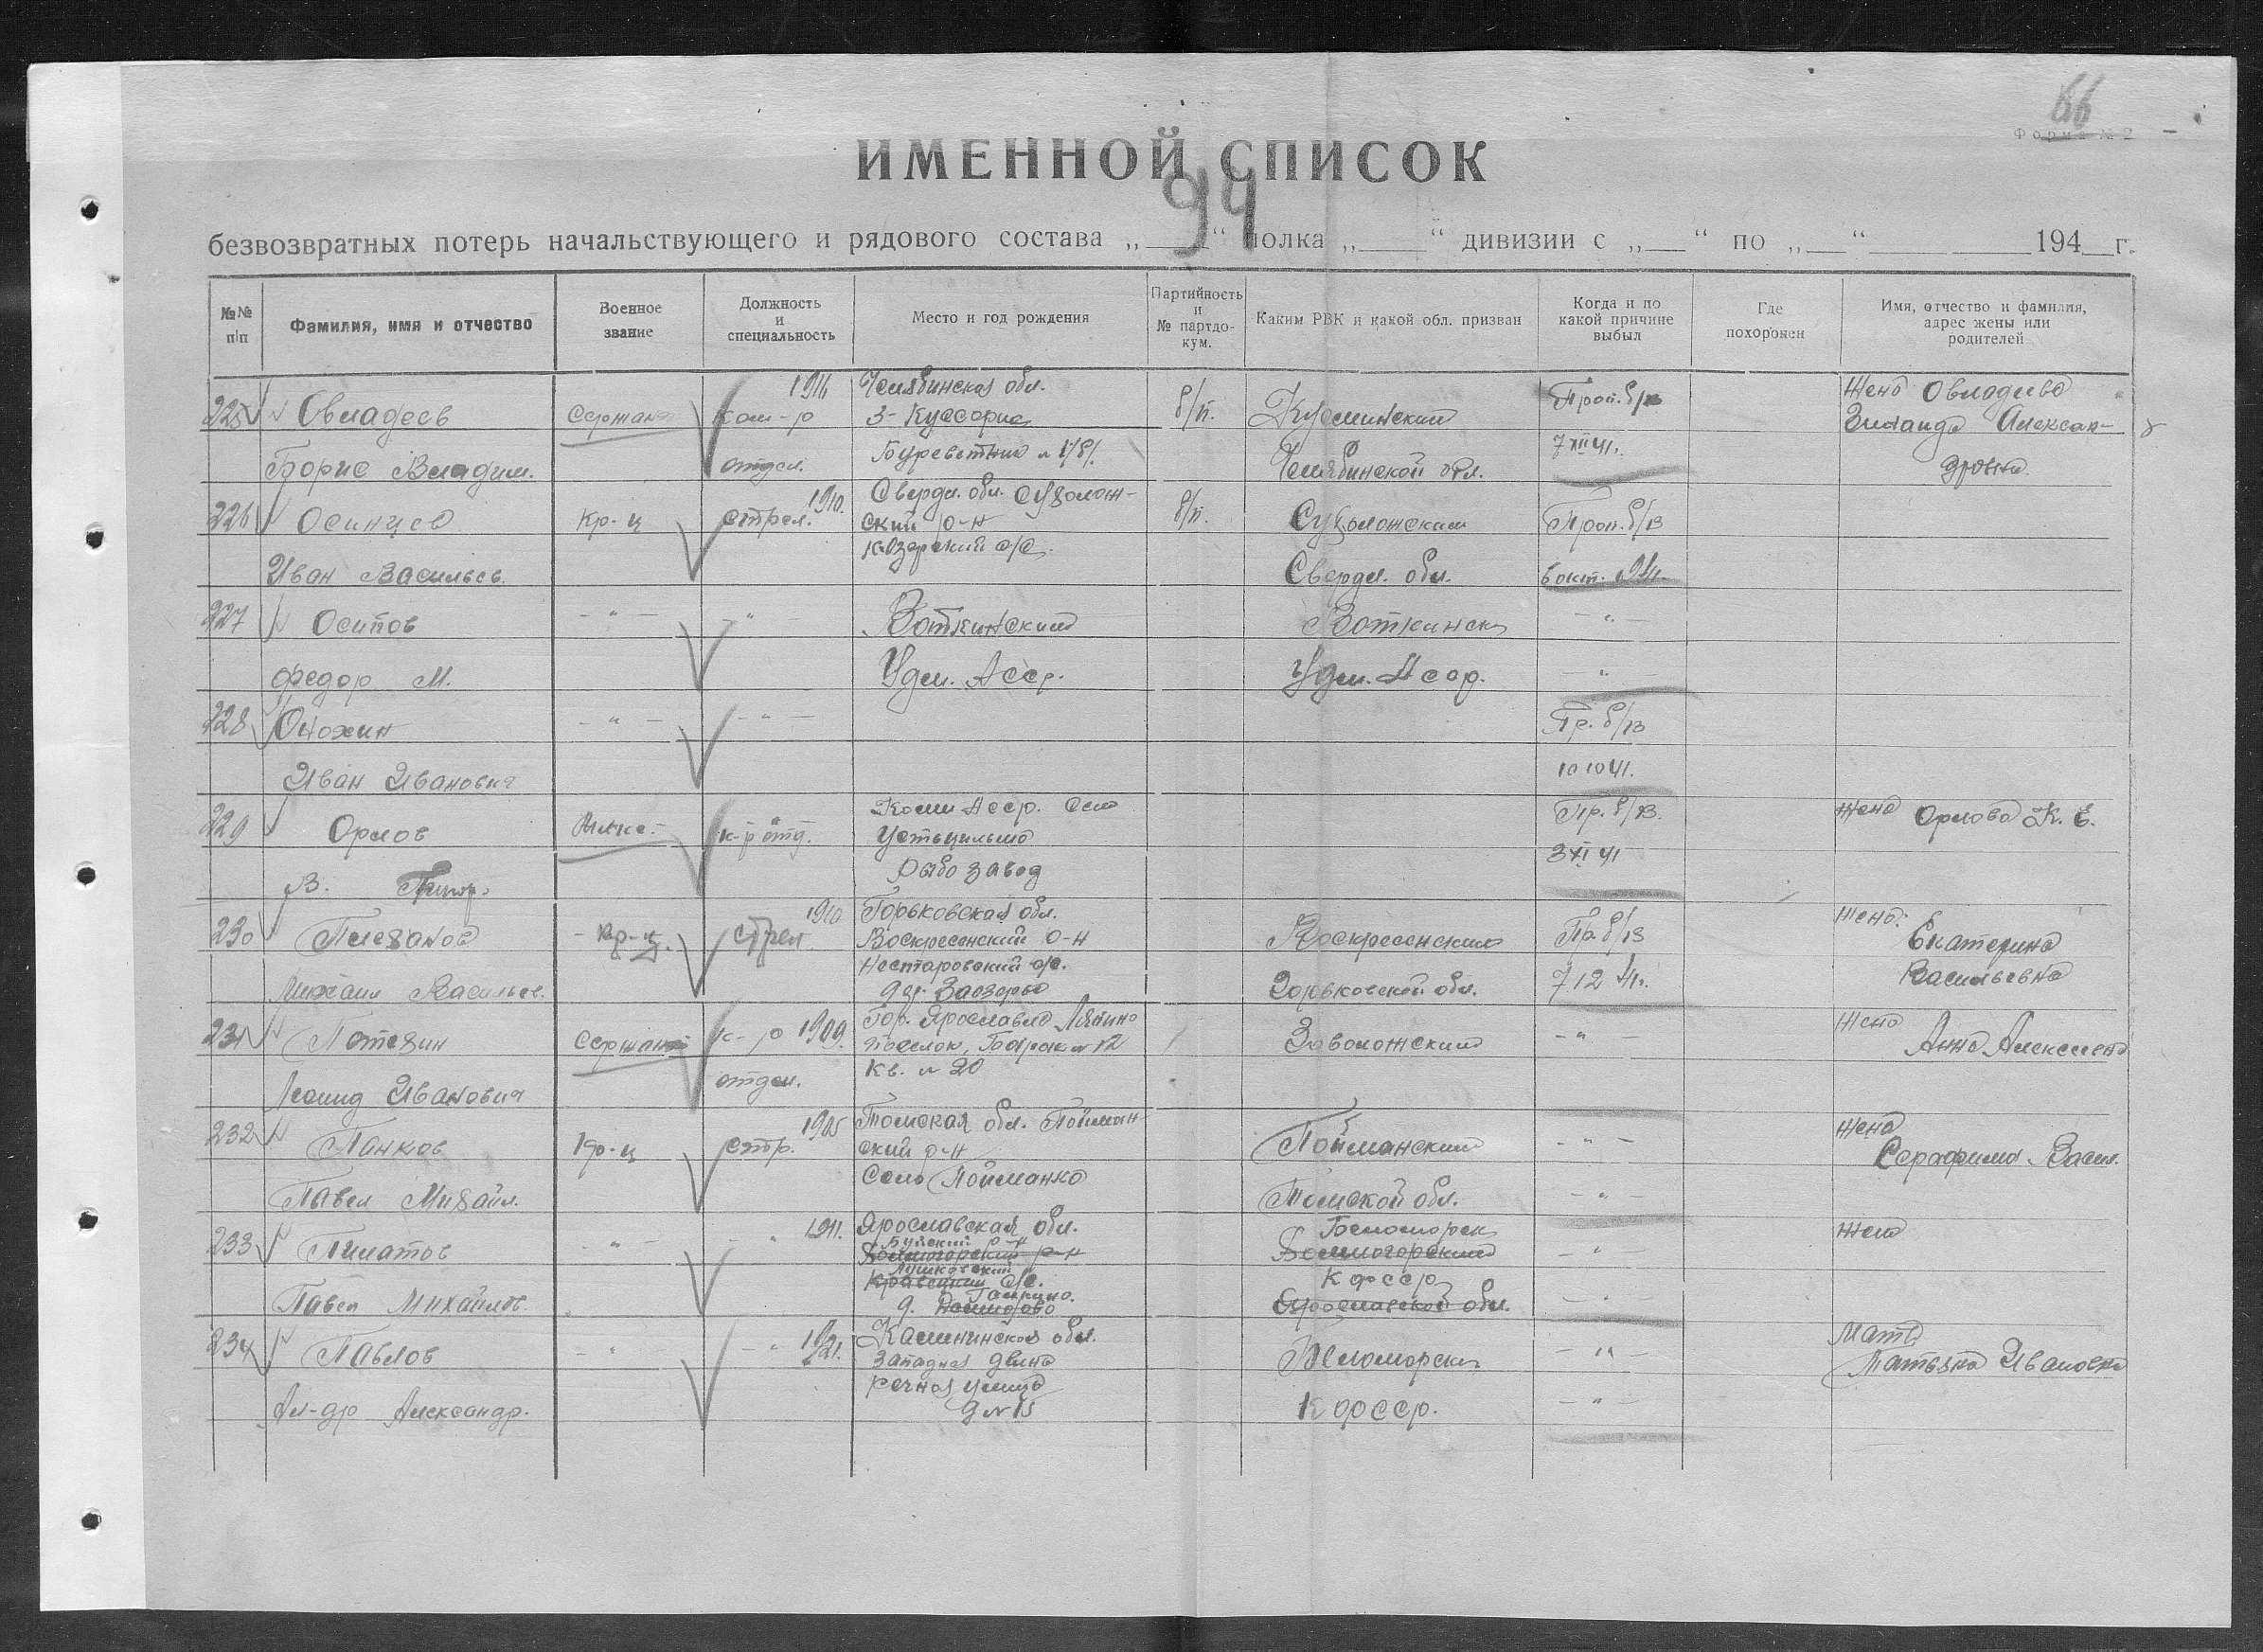 66
Форма № 2
ИМЕННОЙ СПИСОК
99
безвозвратных потерь начальствующего и рядового состава „ “ полка „ “ дивизии с „ “ по „ “ 194 г.
№№ п/п
Фамилия, имя и отчество
Военное звание
Должность и специальность
Место и год рождения
Партийность и № партдокум.
Каким РВК и какой обл. призван
Когда и по какой причине выбыл
Где похоронен
Имя, отчество и фамилия, адрес жены или родителей
225 Овладеев Сержант ком-р 1916 Челябинская обл. б/п. Челябинской обл. Проп. б/в
Борис Владим. отдел. 7 XII 41. Жена Овладеева Зинаида Александровна
226 Осинцев Кр-ц стрел. 1910. Сверд. обл. Сухолож-
ский р-н б/п. Сухоложский Проп. б/в
Иван Васильев. Свердл. обл. 6 окт. 41.
227 Осипов - " - - " Воткинский Воткинск - " -
Федор М. Удм. Асср. Удм. Асср. - " -
228 Онохин - " - - " - Пр. б/в
Иван Иванович 10 10 41.
229 Орлов к-р отд. Коми Асср. село Пр. б/в. жена Орлова К. Е.
Устьцильма
рыбозавод 3 XI 41
В.
230 Михаил Васильев. Кр-ц. стрел 1910 Горьковская обл.
Воскресенский р-н Воскресенский Пр. б/в жена: Екатерина
дер. Заозерье Горьковской обл. 7 12 41. Васильевна
231 Потехин Сержант к-р 1909. Гор. Ярославль Ляпино
поселок, Барак № 12 Заволжский - " - Жена Анна Алексеевна
Леонид Иванович отдел. кв. № 20
232 Панков кр-ц стр. 1905 Томская обл. Пойман
ский р-н Пойманский - " - жена Серафима Васил.
Павел Михайл. село Пойманка Томской обл. - " -
233 - " - - " 1911. Ярославская обл. Беломорск - " жена
Буйский р-н
Павел Михайлов. с/с. Кфсср - " -
д. Ярославской обл.
234 Павлов - " - - " - 1921. Калининская обл. Беломорск - " - Мать
Западная Двина Татьяна Ивановна
речная улица
Ал-др Александр. д № 15 Кфсср. - " -